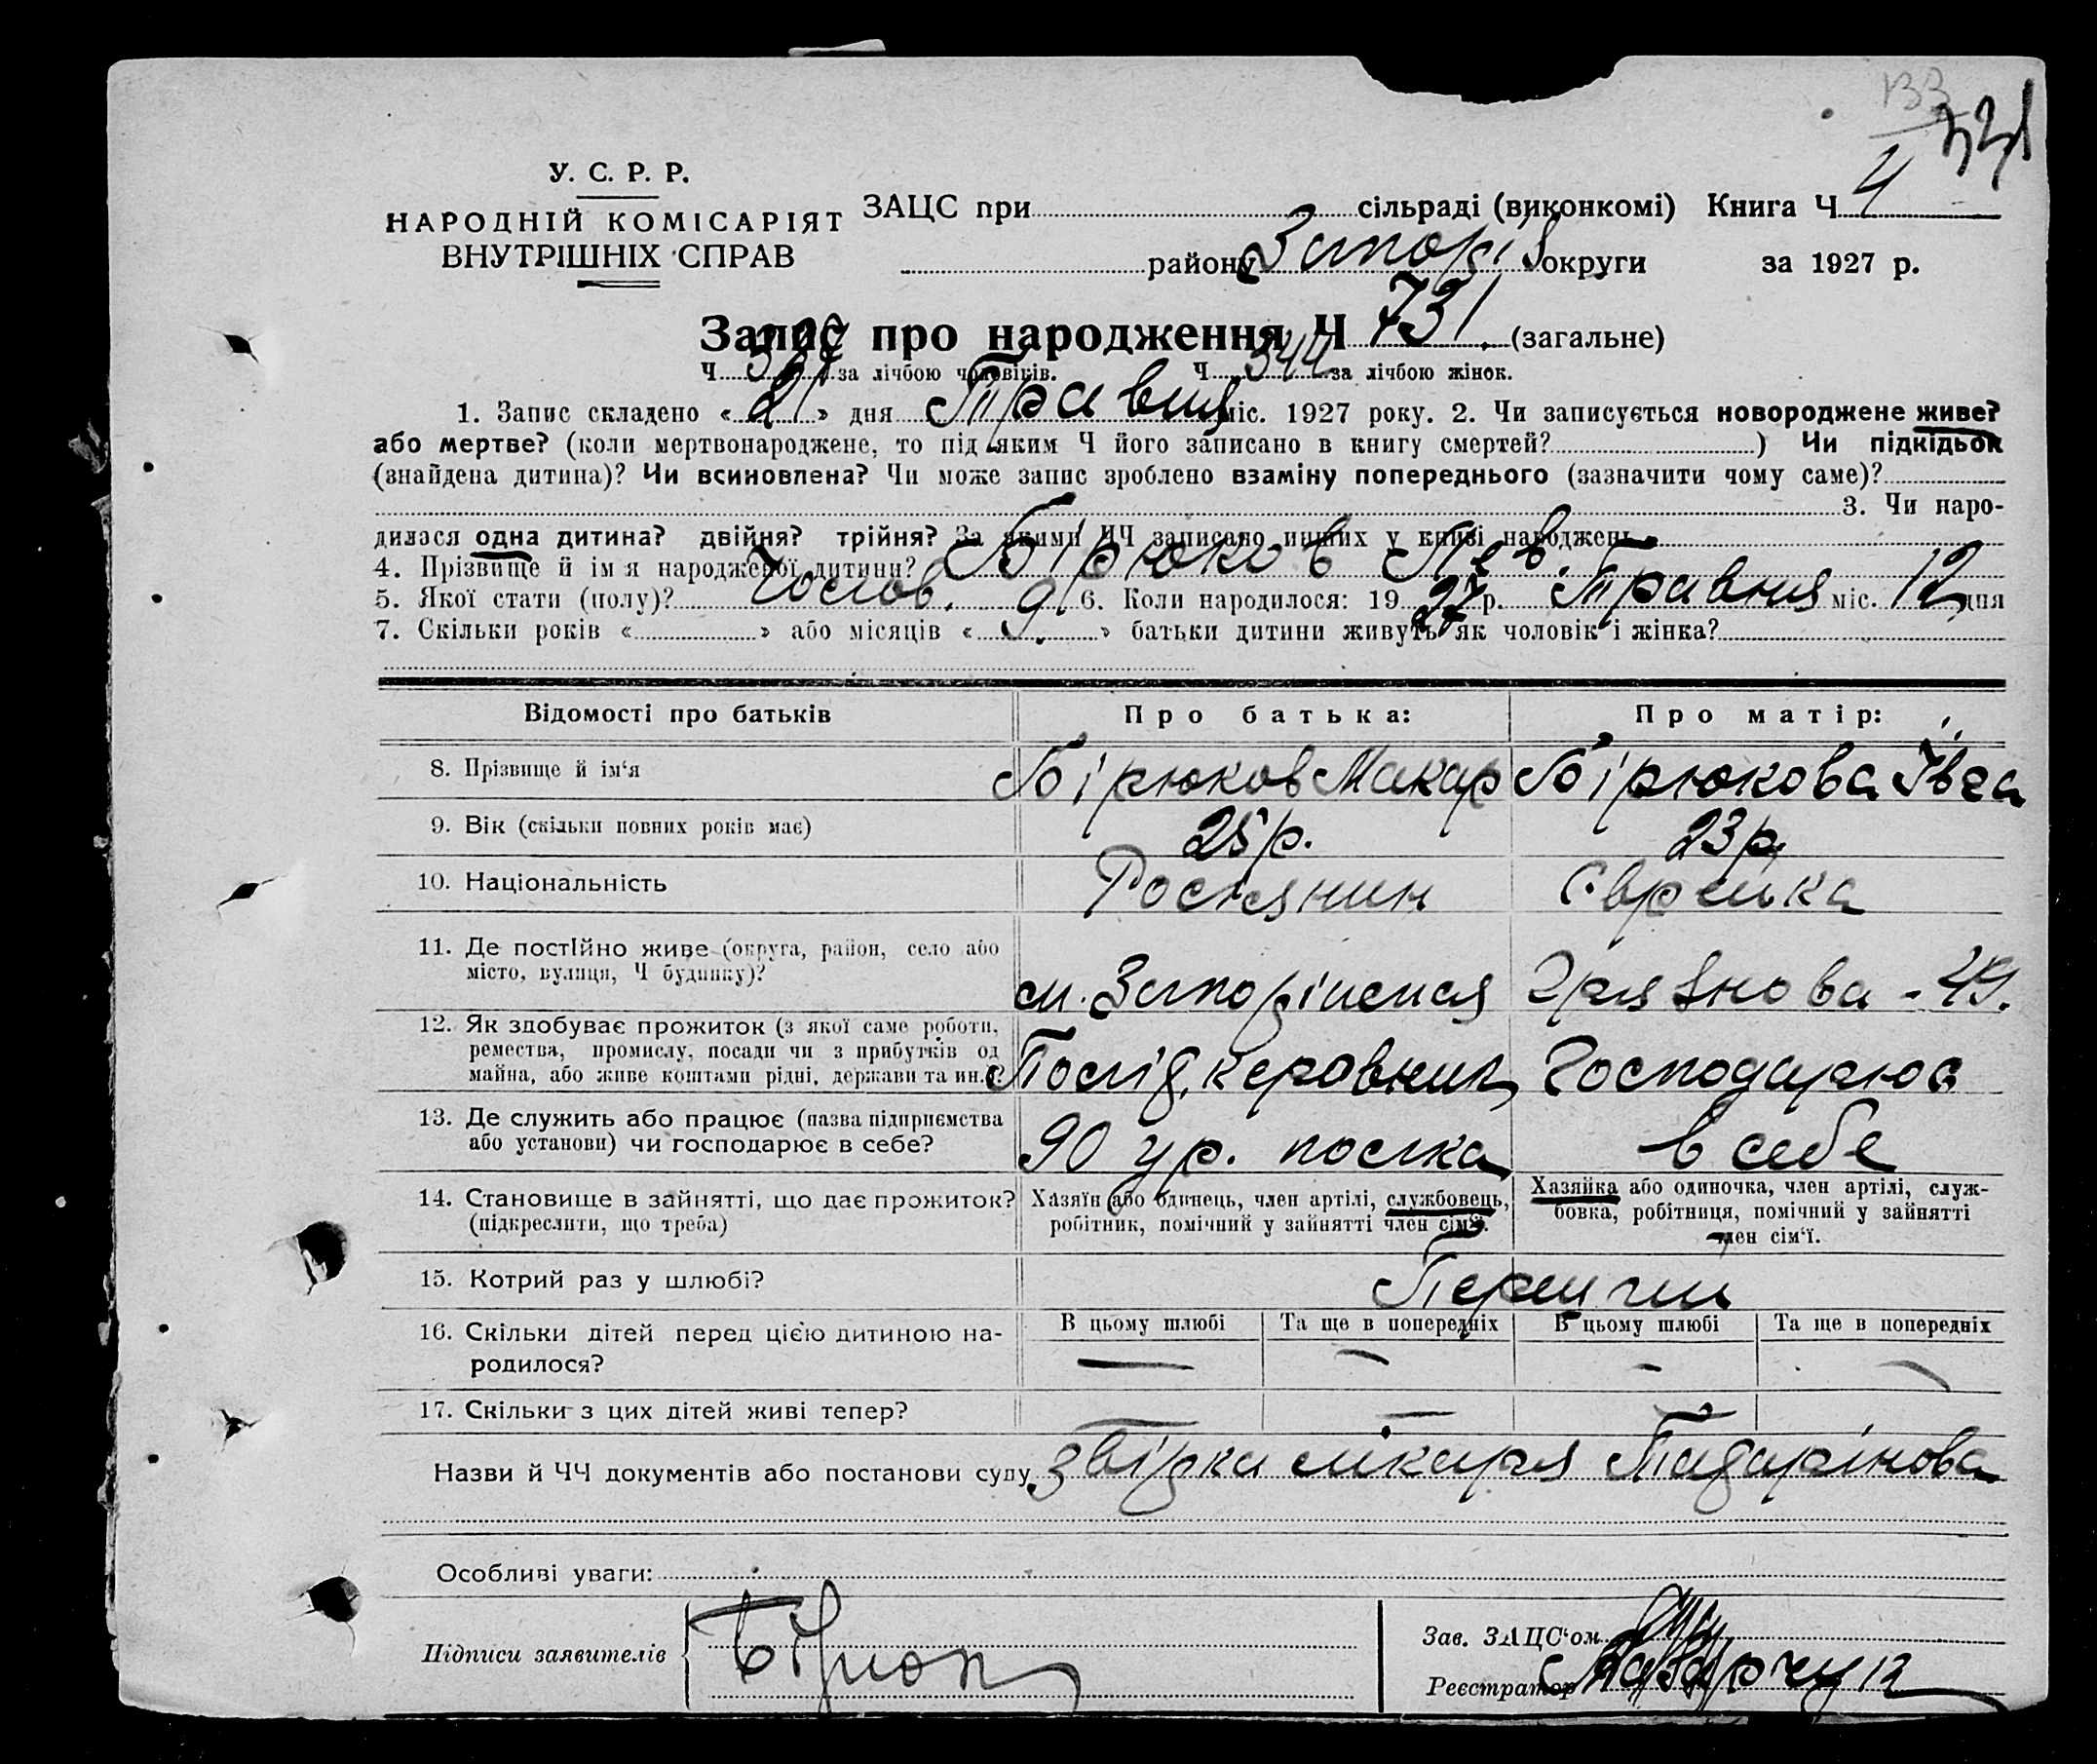 133
331
У. С. Р. Р.
НАРОДНІЙ КОМІСАРІЯТ
ВНУТРІШНІХ СПРАВ
ЗАЦС при сільраді (виконкомі) Книга Ч 4
району Запоріз округи за 1927 р.
Запис про народження Ч 731. (загальне)
Ч за лічбою чоловіків. Ч 344 за лічбою жінок.
1. Запис складено « 21 » дня Травня міс. 1927 року. 2. Чи записується новороджене живе?
або мертве? (коли мертвонароджене, то під яким Ч його записано в книгу смертей? ) Чи підкідьок
(знайдена дитина)? Чи всиновлена? Чи може запис зроблено взаміну попереднього (зазначити чому саме)?
3. Чи наро-
дилася одна дитина? двійня? трійня? За якими ЧЧ записано инших у книзі народжень
4. Прізвище й ім'я народженої дитини? Бірюков Лев.
5. Якої стати (полу)? Чолов. 9 6. Коли народилося: 19 27 р. Травня міс. 12 дня
7. Скільки років « » або місяців « 9. » батьки дитини живуть як чоловік і жінка?
Відомості про батьків Про батька: Про матір:
8. Прізвище й ім'я Бірюков Макар Бірюкова Івга
9. Вік (скільки повних років має) 25 р. 23 р.
10. Національність Росіянин Єврейка
11. Де постійно живе (округа, район, село або
місто, вулиця, Ч будинку)? м. Запоріжжя Грязнова - 49.
12. Як здобуває прожиток (з якої саме роботи,
ремества, промислу, посади чи з прибутків од
майна, або живе коштами рідні, держави та ин.)? керовник Господарює
13. Де служить або працює (назва підприємства
або установи) чи господарює в себе? 90 ур. полка в себе
14. Становище в зайнятті, що дає прожиток?
(підкреслити, що треба)
Хазяїн або одинець, член артілі, службовець,
робітник, помічний у зайнятті член сім'ї.
Хазяйка або одиночка, член артілі, служ-
бовка, робітниця, помічний у зайнятті
член сім'ї.
15. Котрий раз у шлюбі? Перший
16. Скільки дітей перед цією дитиною на-
родилося?
В цьому шлюбі Та ще в попередніх В цьому шлюбі Та ще в попередніх
— — — —
17. Скільки з цих дітей живі тепер? — — —
Назви й ЧЧ документів або постанови суду Звірка лікаря
Особливі уваги:
Підписи заявителів
Зав. ЗАЦС'ом
Реєстратор